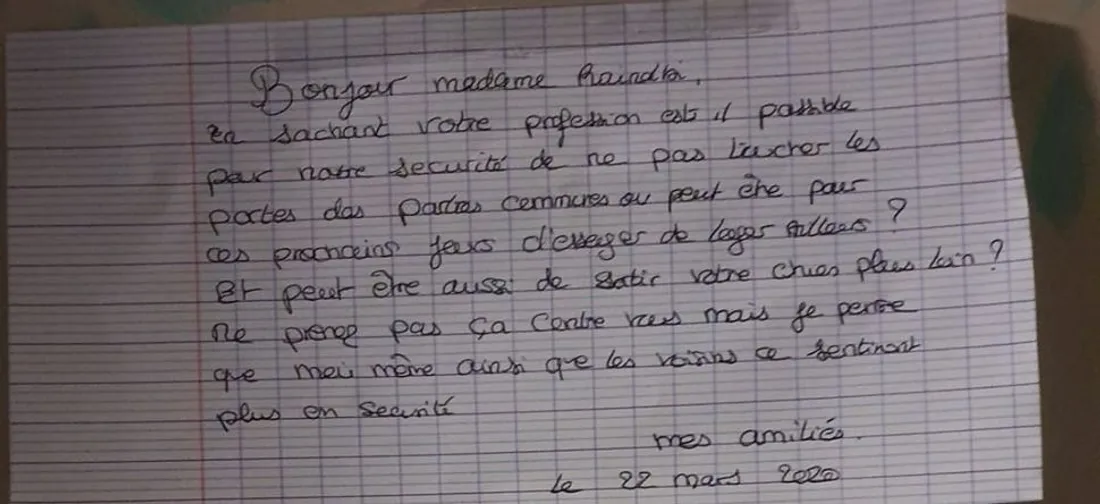 Bonjour madame
en sachant votre profession est il possible
pour notre securité de ne pas toucher les
portes das parties communes ou peut être pour
ces prochains jours d'esseyer de loger ailleurs ?
Et peut être aussi de sortir votre chien plus loin ?
ne prenez pas ça contre vous mais je pense
que moi même ainsi que les voisins ce sentiront
plus en securité
mes amitiés.
le 22 mars 2020